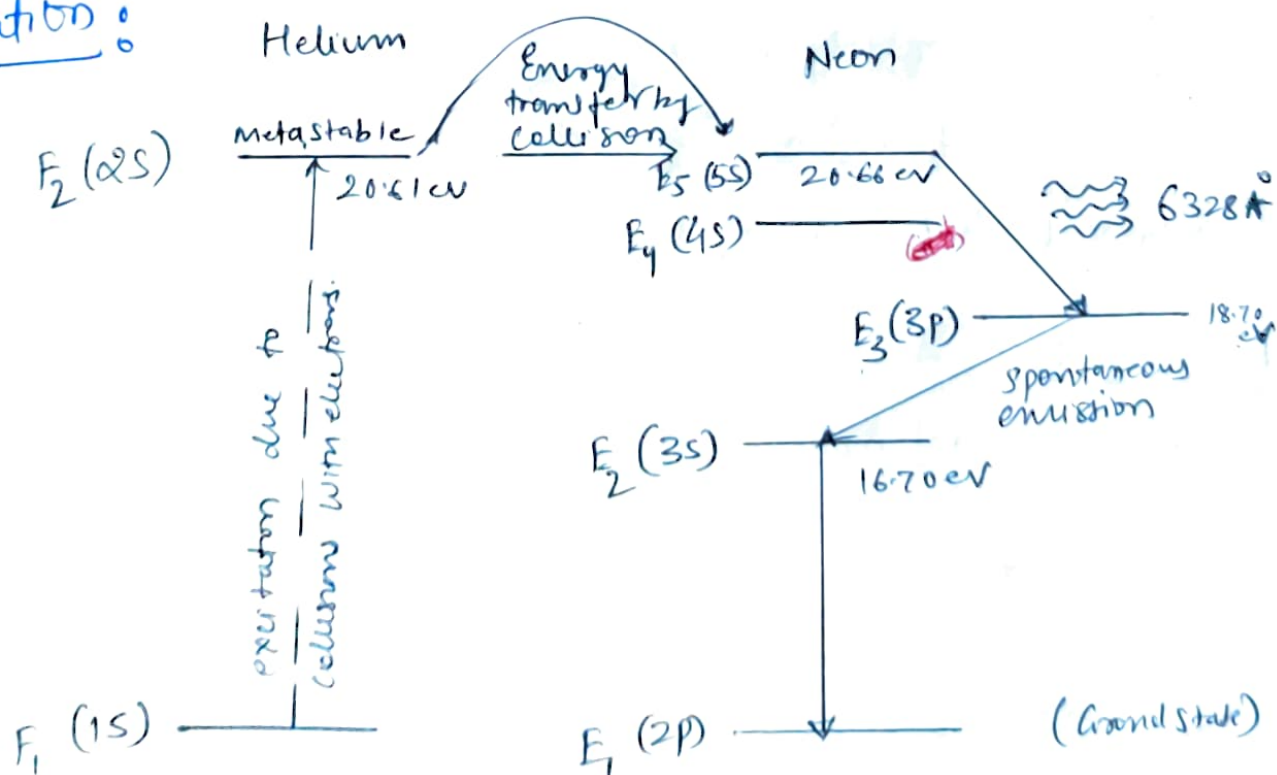 tion :
Helium
Neon
Energy
transfer by
collision
metastable
F2 (2S)
20.61 eV
E5 (5S)
20.66 eV
6328 Å
E4 (4S)
E3 (3P)
18.70
eV
spontaneous
emission
E2 (3S)
16.70 eV
excitation due to
collisions with electrons.
F1 (1S)
E1 (2P)
(Ground State)